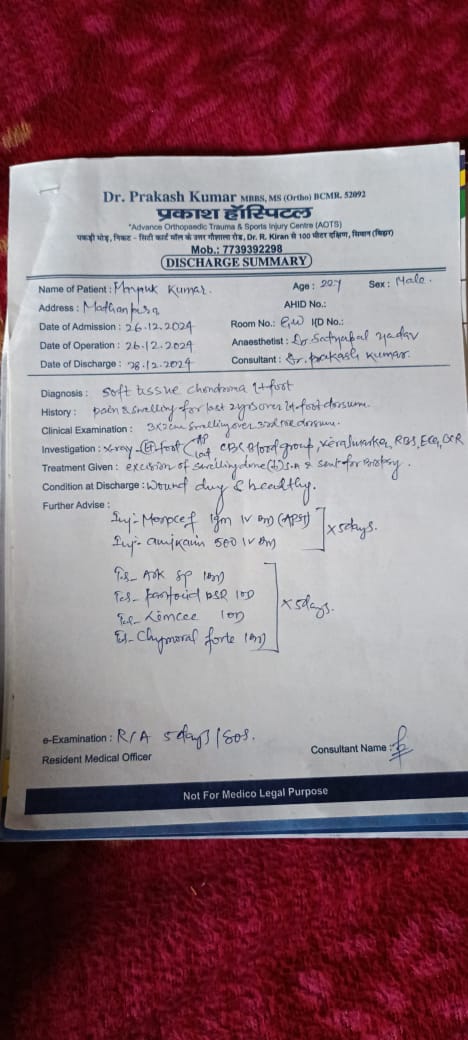 Dr. Prakash Kumar MBBS, MS (Ortho) BCMR. 52092
प्रकाश हॉस्पिटल
"Advance Orthopaedic Trauma & Sports Injury Centre (AOTS)
पकड़ी मोड़, निकट - सिटी कार्ट मॉल के उत्तर गौशाला रोड, Dr. R. Kiran से 100 मीटर दक्षिण, सिवान (बिहार)
Mob.: 7739392298
DISCHARGE SUMMARY
Name of Patient : Kumar. Age : Sex : Male.
Address : AHID No.:
Date of Admission : 26.12.2024 Room No.: G/W I(D No.:
Date of Operation : 26.12.2024 Anaesthetist : Dr Satyapal Yadav
Date of Discharge : 28.12.2024 Consultant : Dr. Prakash Kumar.
Diagnosis : Soft tissue chondroma foot
History : pain & swelling for last 2 yrs over foot dorsum.
Clinical Examination : 3x2cm swelling over dorsum.
Investigation : X-ray foot AP Lat CBC Blood group, RBS, ECG, CXR
Treatment Given : excision of swelling done S.A & sent for Biopsy.
Condition at Discharge : Wound dry & healthy.
Further Advise :
Inj- Monocef 1gm IV BD (APST)
Inj- amikacin 500 IV BD
x 5days.
SP BD
Pantocid DSR OD
Limcee OD
Chymoral forte BD
x 5days.
e-Examination : R/A 5 days / SOS.
Resident Medical Officer
Consultant Name :
Not For Medico Legal Purpose